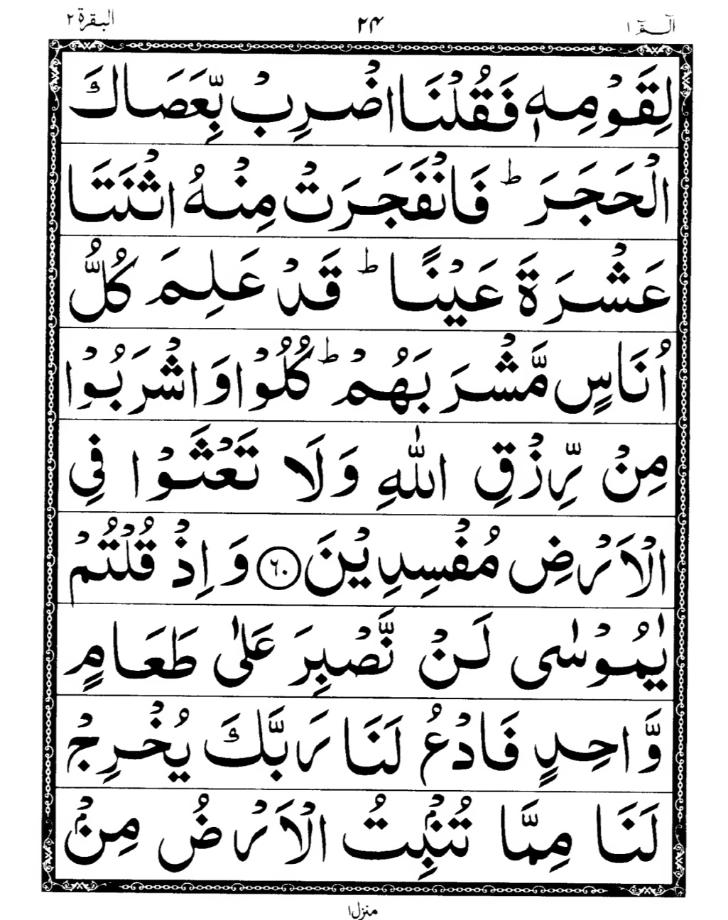 الٓـمّٓ ١ ٢٤ البقرة ٢
لِقَوْمِهٖ فَقُلْنَا اضْرِبْ بِّعَصَاكَ
الْحَجَرَ ؕ فَانْفَجَرَتْ مِنْهُ اثْنَتَا
عَشْرَةَ عَيْنًا ؕ قَدْ عَلِمَ كُلُّ
اُنَاسٍ مَّشْرَبَهُمْ ؕ كُلُوْا وَاشْرَبُوْا
مِنْ رِّزْقِ اللّٰهِ وَلَا تَعْثَوْا فِي
الْاَرْضِ مُفْسِدِيْنَ ۝٦٠ وَاِذْ قُلْتُمْ
يٰمُوْسٰى لَنْ نَّصْبِرَ عَلٰى طَعَامٍ
وَّاحِدٍ فَادْعُ لَنَا رَبَّكَ يُخْرِجْ
لَنَا مِمَّا تُنْۢبِتُ الْاَرْضُ مِنْۢ
منزل ١